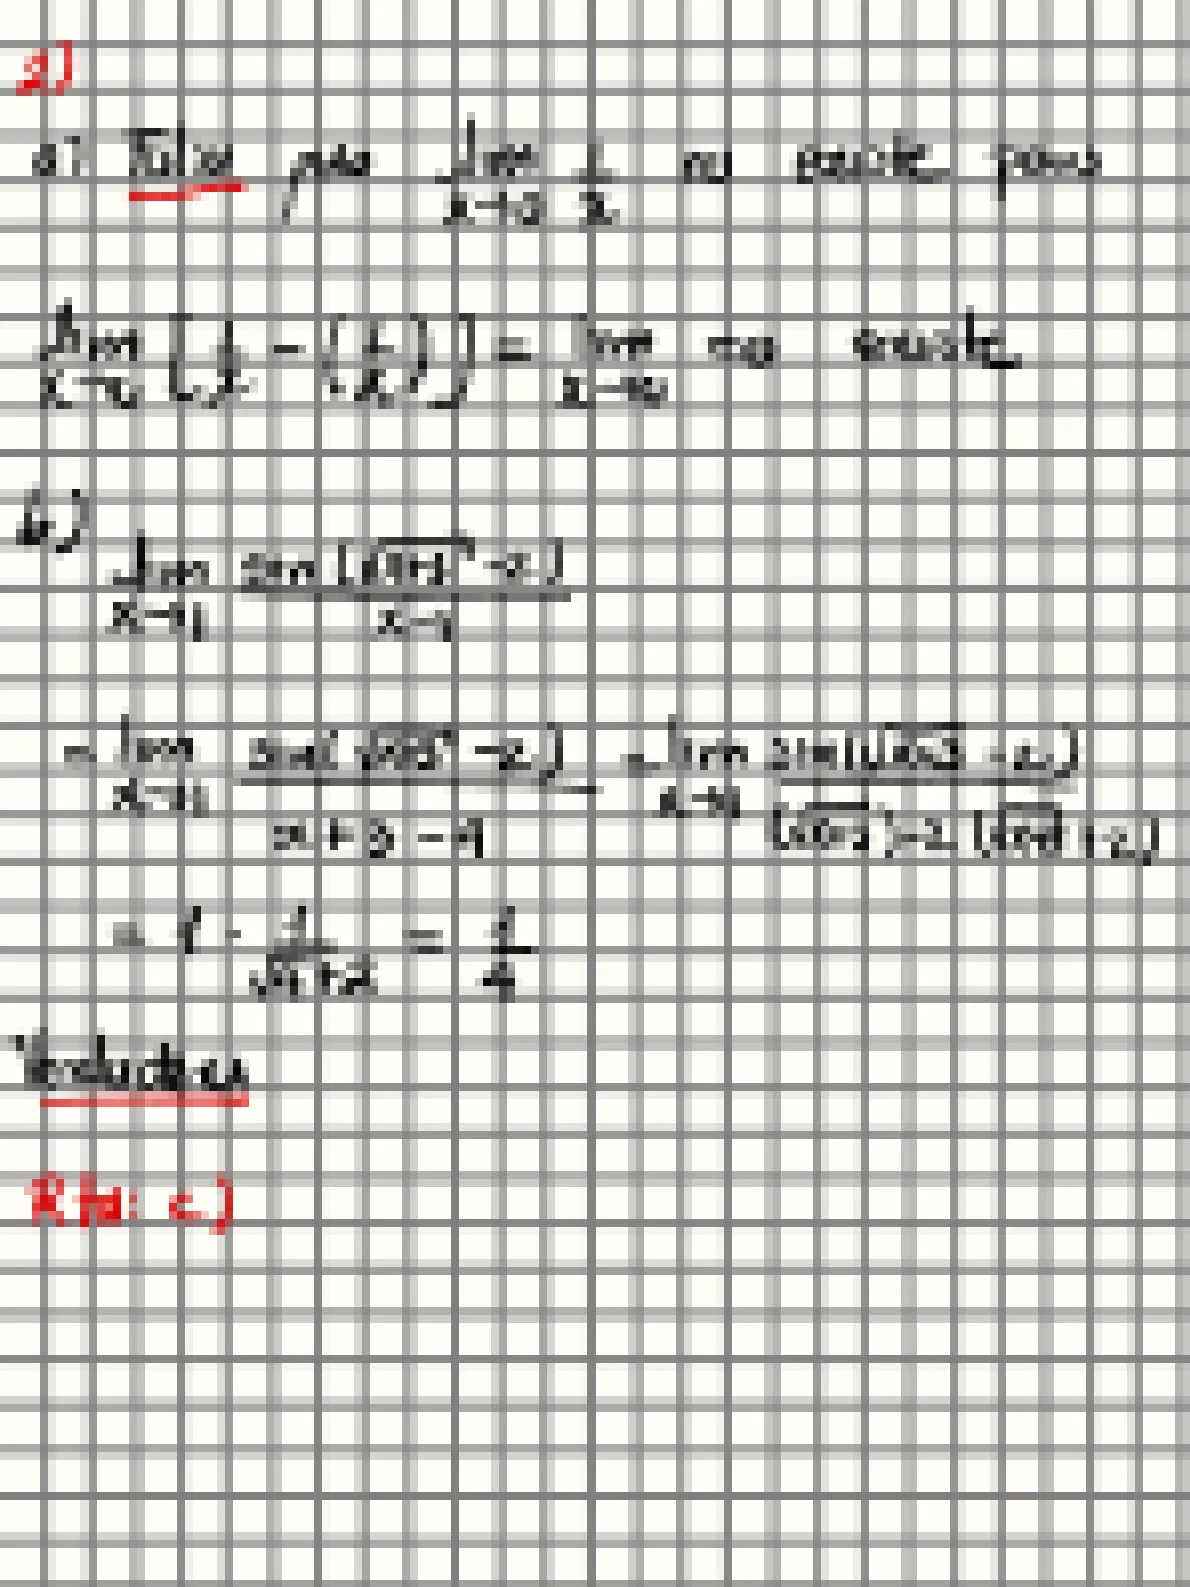 2)
a) Falso pues lim x→0 1/x no existe pero
lim x→0 [1/x - (1/x)] = lim x→0 no existe
b)
lim x→1 sen(√x+3 - 2) / x-1
= lim x→1 sen(√x+3 - 2) / x+3-4 = lim x→1 sen(√x+3 - 2) / (√x+3)-2 (√x+3 +2)
= 1 · 1/√4+2 = 1/4
Verdadera
Rta: c)